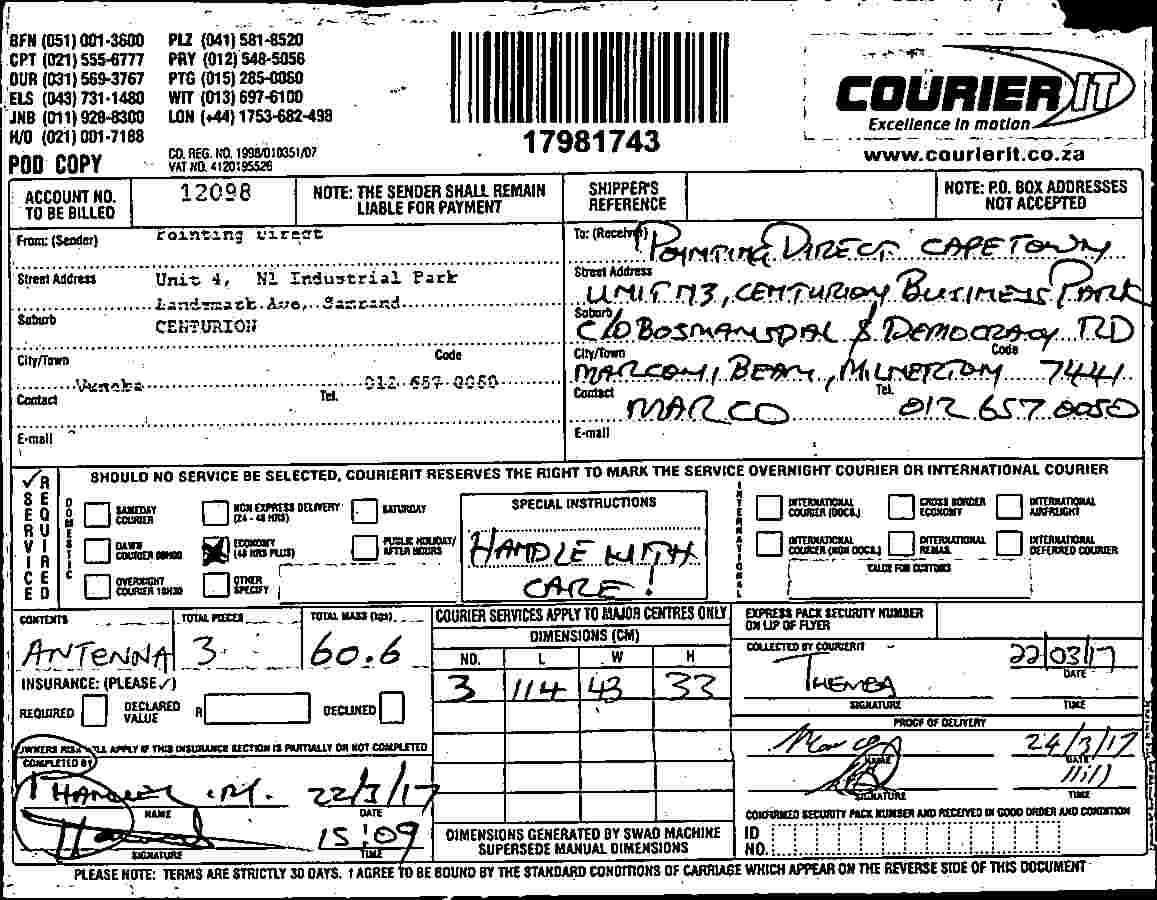 BFN (051) 001-3600 PLZ (041) 581-8520
CPT (021) 555-6777 PRY (012) 548-5056
DUR (031) 569-3767 PTG (015) 285-0060
ELS (043) 731-1480 WIT (013) 697-6100
JNB (011) 929-8300 LON (+44) 1753-682-498
H/O (021) 001-7188
POD COPY
CO. REG. NO. 1998/010351/07
VAT NO. 4120195526
17981743
COURIER IT
Excellence in motion
www.courierit.co.za
ACCOUNT NO. TO BE BILLED 12098
NOTE: THE SENDER SHALL REMAIN LIABLE FOR PAYMENT
SHIPPER'S REFERENCE
NOTE: P.O. BOX ADDRESSES NOT ACCEPTED
From: (Sender) Pointing Direct
Street Address Unit 4, N1 Industrial Park
Landsmark Ave, Samrand
Suburb CENTURION
City/Town Code
012 657 0050
Contact Tel.
E-mail
To: (Receiver) POINTING DIRECT CAPE TOWN
Street Address
UNIT M3, CENTURION BUSINESS PARK
Suburb C/O BOSMANSDAL & DEMOCRACY RD
City/Town Code
MARCONI, BEAM, MILNERTON 7441
Contact MARCO Tel. 012 657 0050
E-mail
SHOULD NO SERVICE BE SELECTED, COURIERIT RESERVES THE RIGHT TO MARK THE SERVICE OVERNIGHT COURIER OR INTERNATIONAL COURIER
✓ SERVICE REQUIRED
DOMESTIC
SAMEDAY COURIER
NON EXPRESS DELIVERY (24 - 48 HRS)
SATURDAY
DAWN COURIER 08H00
ECONOMY (48 HRS PLUS)
PUBLIC HOLIDAY/ AFTER HOURS
OVERNIGHT COURIER 10H30
OTHER SPECIFY
SPECIAL INSTRUCTIONS
HANDLE WITH
CARE!
INTERNATIONAL
INTERNATIONAL COURIER (DOCS.)
CROSS BORDER ECONOMY
INTERNATIONAL AIRFREIGHT
INTERNATIONAL COURIER (NON DOCS.)
INTERNATIONAL REMAIL
INTERNATIONAL DEFERRED COURIER
VALUE FOR CUSTOMS
CONTENTS ANTENNA
TOTAL PIECES 3
TOTAL MASS (kgs) 60.6
INSURANCE: (PLEASE ✓)
REQUIRED
DECLARED VALUE R
DECLINED
OWNERS RISK WILL APPLY IF THIS INSURANCE SECTION IS PARTIALLY OR NOT COMPLETED
COMPLETED BY
22/3/17
NAME DATE
15:09
SIGNATURE TIME
COURIER SERVICES APPLY TO MAJOR CENTRES ONLY
DIMENSIONS (CM)
NO. L W H
3 114 43 33
DIMENSIONS GENERATED BY SWAD MACHINE SUPERSEDE MANUAL DIMENSIONS
EXPRESS PACK SECURITY NUMBER ON LIP OF FLYER
COLLECTED BY COURIERIT
THEMBA 22/03/17
DATE
SIGNATURE TIME
PROOF OF DELIVERY
Marco 24/3/17
NAME DATE
SIGNATURE TIME
CONFIRMED SECURITY PACK NUMBER AND RECEIVED IN GOOD ORDER AND CONDITION
ID NO.
PLEASE NOTE: TERMS ARE STRICTLY 30 DAYS. I AGREE TO BE BOUND BY THE STANDARD CONDITIONS OF CARRIAGE WHICH APPEAR ON THE REVERSE SIDE OF THIS DOCUMENT